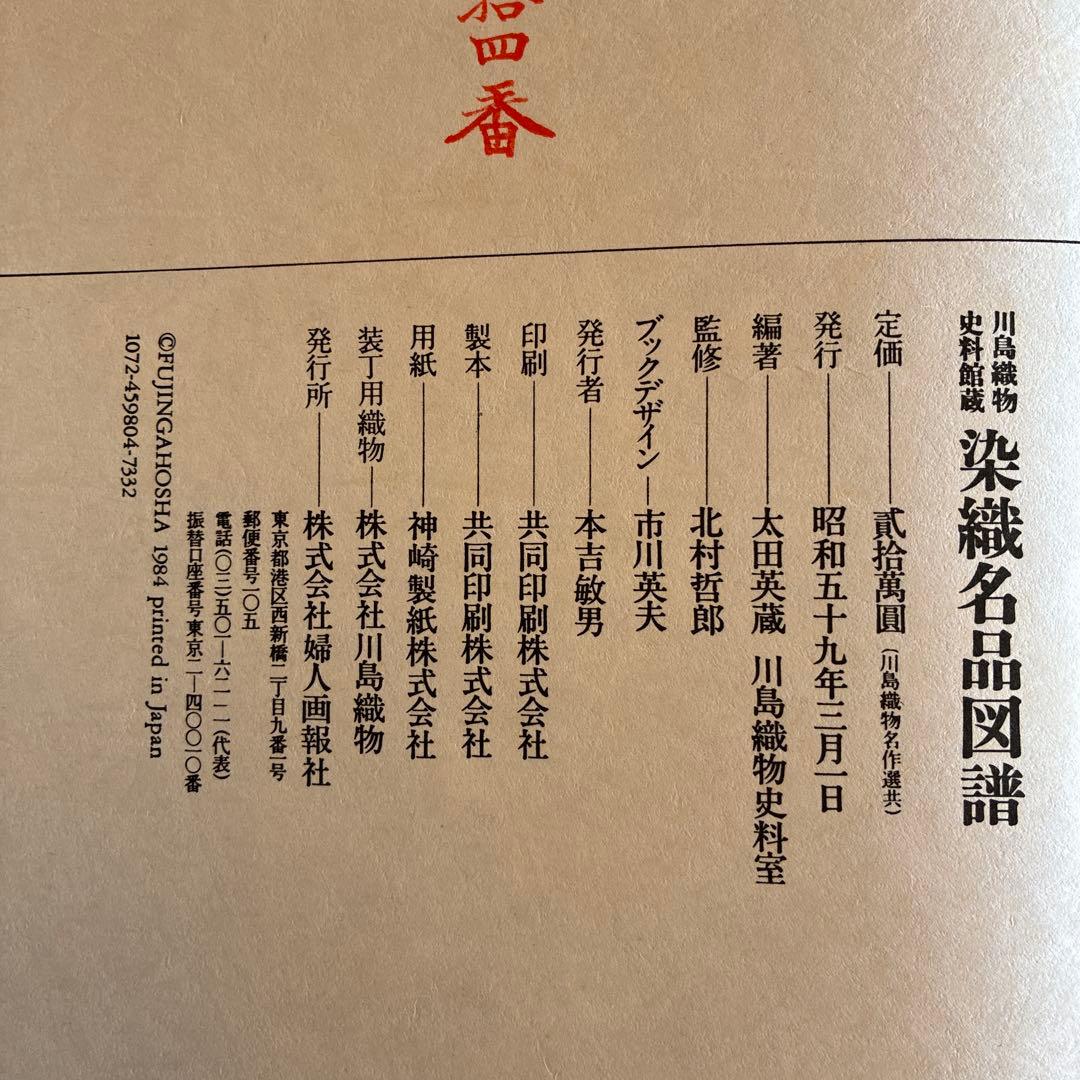 拾四番
川島織物
史料館蔵
染織名品図譜
定価――貳拾萬圓(川島織物名作選共)
発行――昭和五十九年三月一日
編著――太田英蔵 川島織物史料室
監修――北村哲郎
ブックデザイン―市川英夫
発行者――本吉敏男
印刷――共同印刷株式会社
製本――共同印刷株式会社
用紙――神崎製紙株式会社
装丁用織物―株式会社川島織物
発行所――株式会社婦人画報社
東京都港区西新橋二丁目九番一号
郵便番号一〇五
電話(〇三)五〇一―六二一一(代表)
振替口座番号東京二―四〇〇一〇番
©FUJINGAHOSHA 1984 printed in Japan
1072-459804-7332